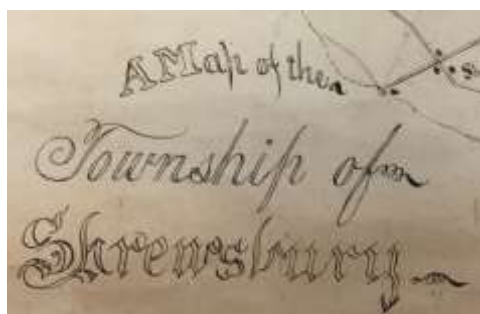 A Map of the
Township of
Shrewsbury